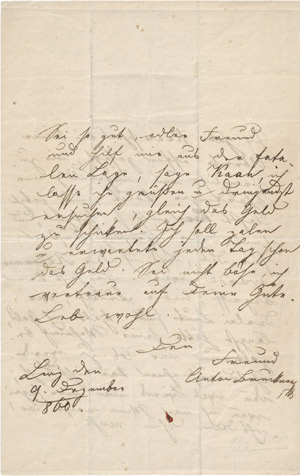 Sei so gut, edler Freund
und hilf mir aus der fata-
len Lage, sage Kaan ich
lasse ihn grüßen u dringendst
ersuchen, gleich das Geld
zu schicken. Ich soll zalen
u erwartete jeden Tag schon
das Geld. Sei nicht böse, ich
vertraue auf Deine Güte.
Leb wohl.
Dein
Freund
Linz den
Anton Bruckner
9. Dezember
860.